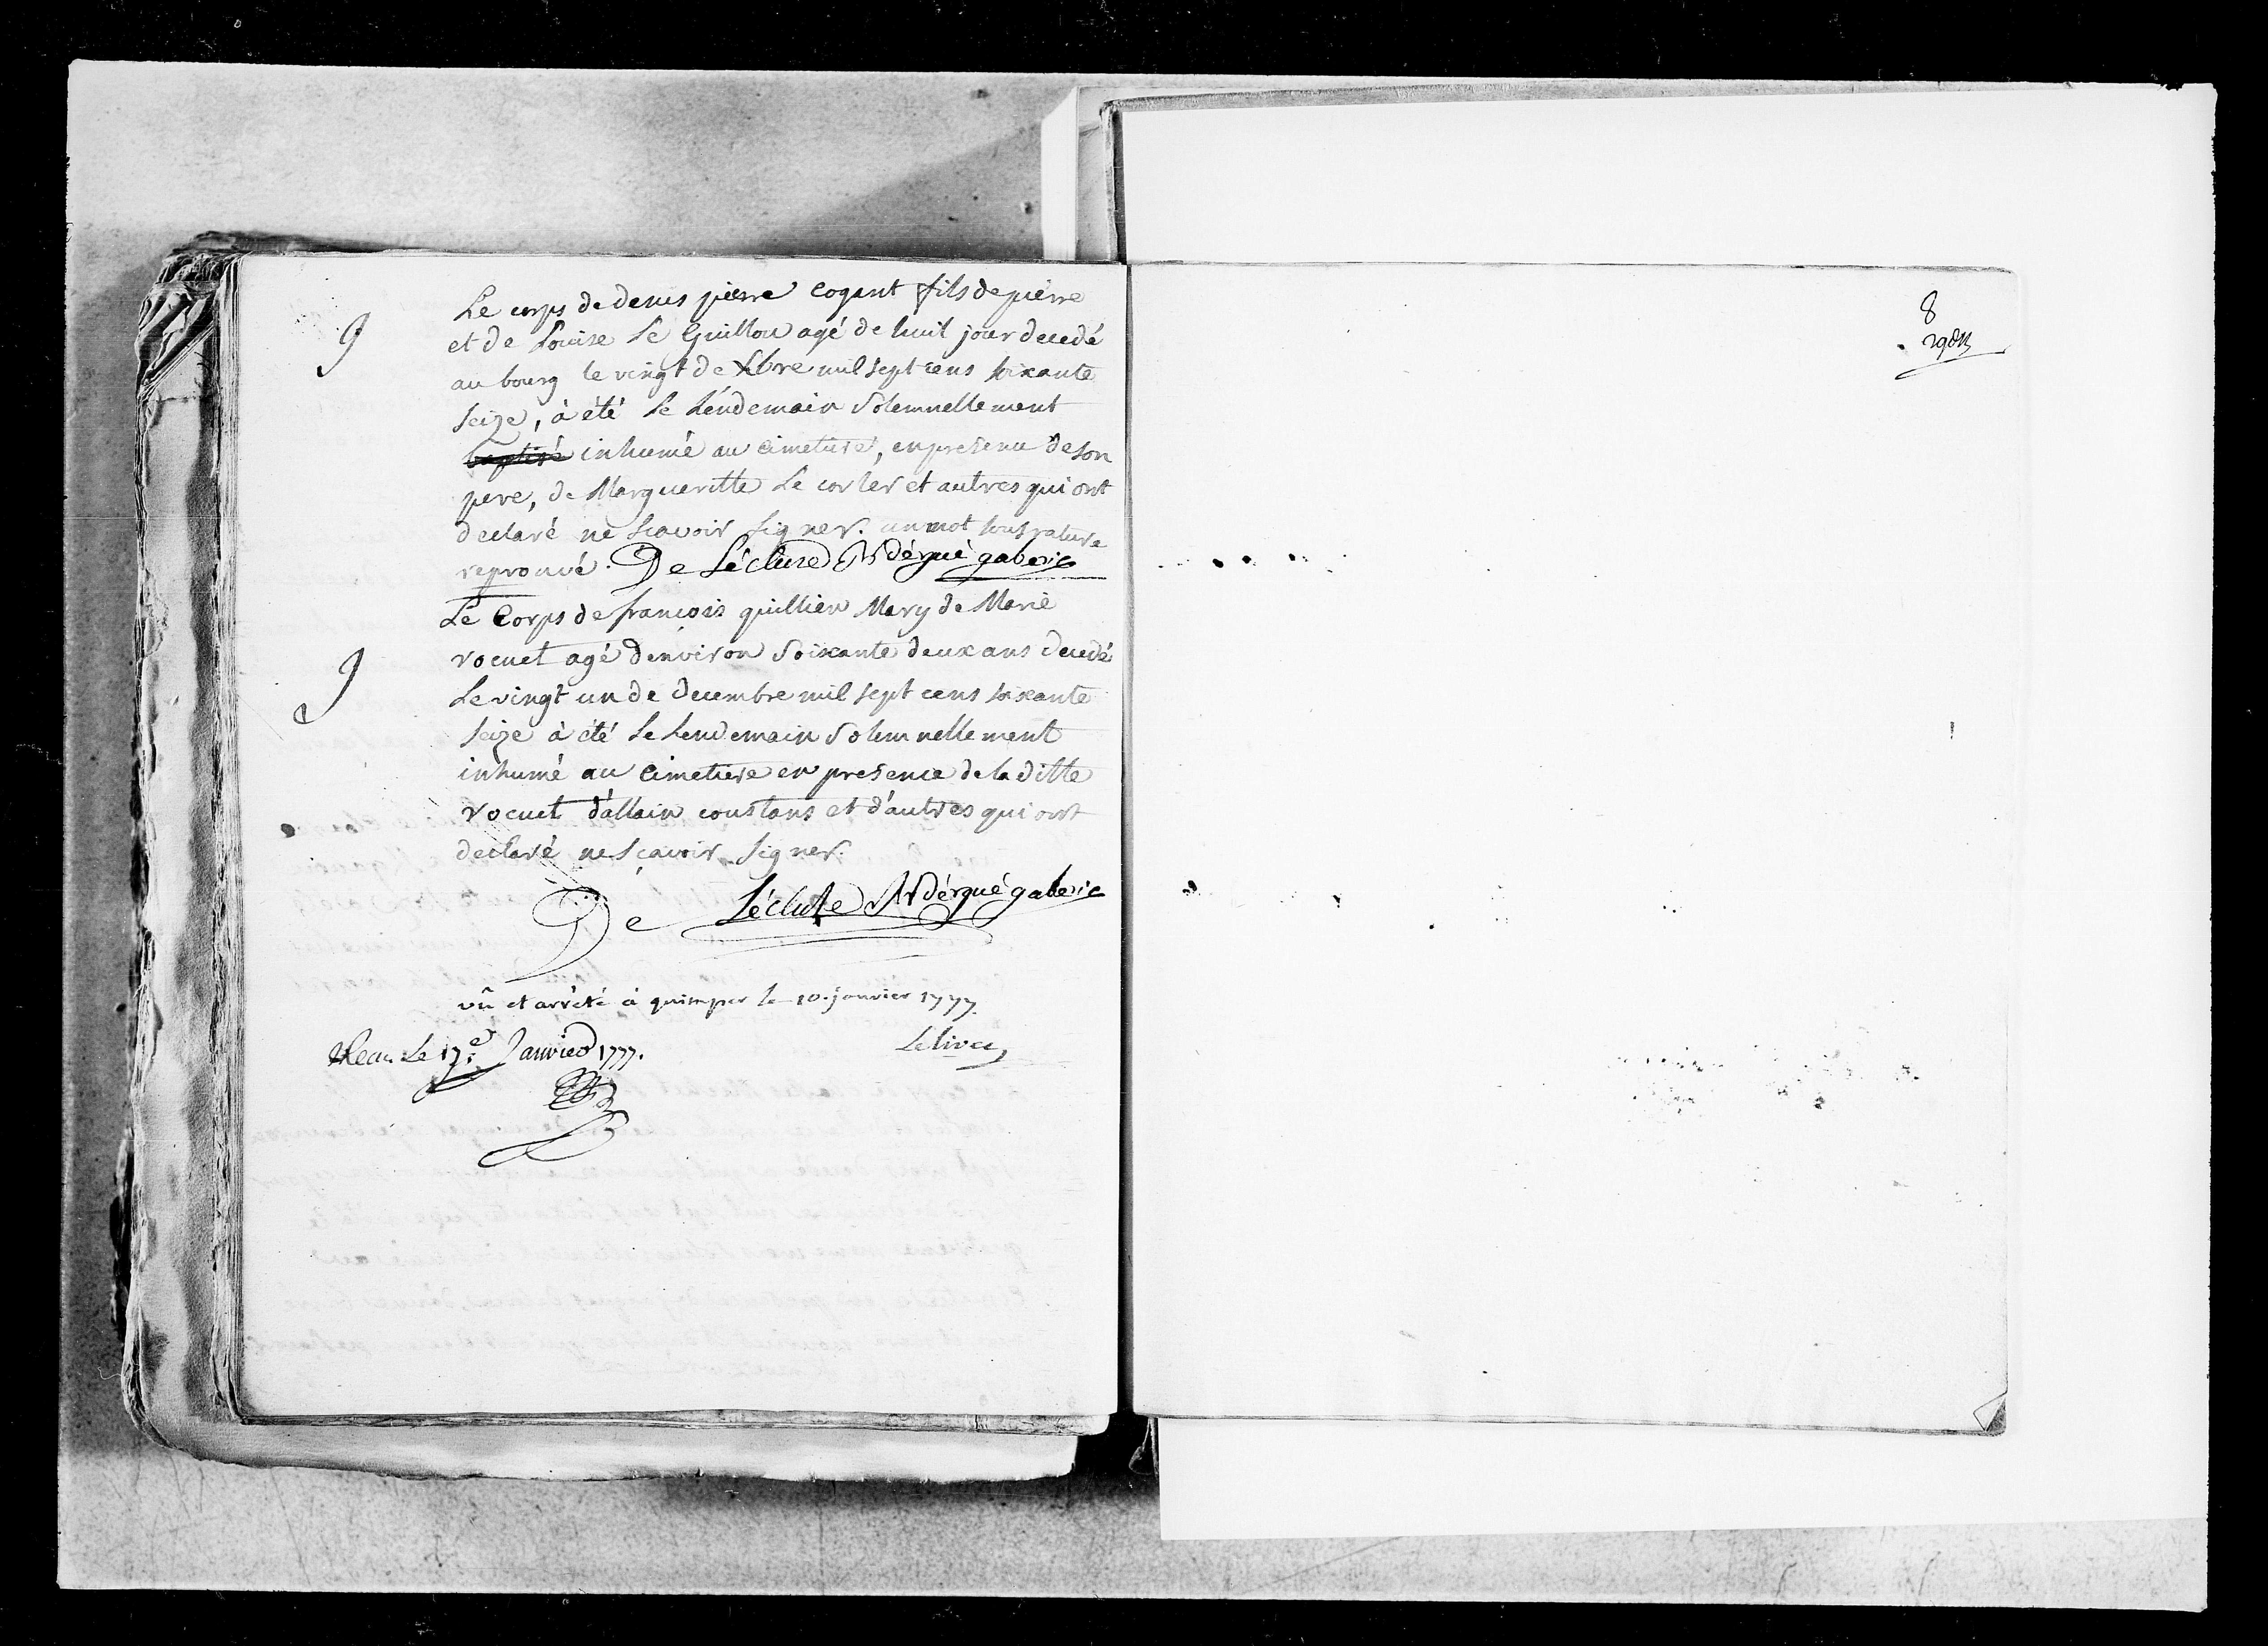 Le corps de denis pierre cogant fils de pierre
et de Louise Le Guillou agé de huit jour decedé
au bourg le vingt de Xbre mil sept cens soixante
seize, à été Le Léndemain Solemnellement
baptisé inhumé au cimetiere, en presence de son
pere, de Margueritte Le corler et autres qui ont
declaré ne scavoir signer. un mot sous rature
reprouvé. De Lécluse Rr dérgué gaberic
Le Corps de francois quillien Mary de Marie
rocuet agé d'environ Soixante deux ans decedé
Le vingt un de decembre mil sept cens soixante
seize à été Le Lendemain Solemnellement
inhumé au cimetiere en presence de la ditte
rocuet d'allain coustans et d'autres qui ont
declaré ne scavoir signer.
De Lécluse Rr dérgué gaberic
vû et arrêté à quimper le 10. janvier 1777.
Le 17e Janvier 1777.
9
9
8